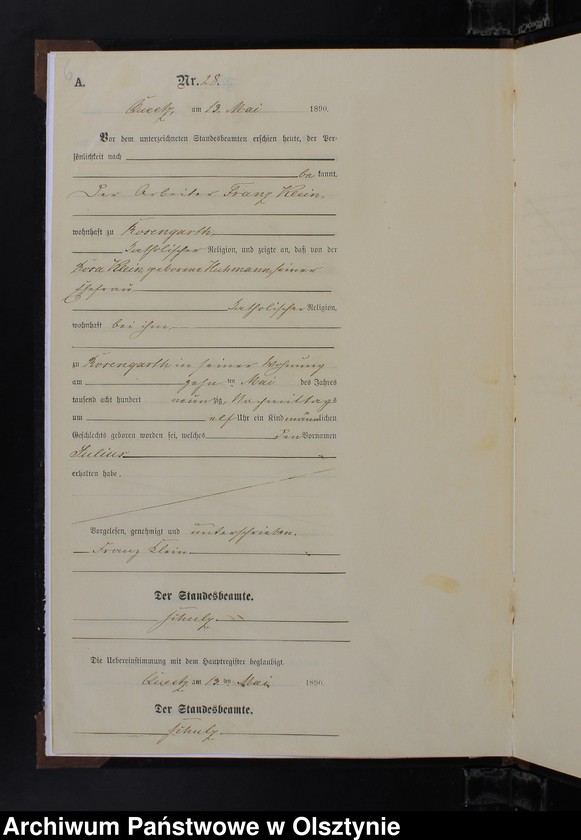 A.
Nr. 28.
Queetz, am 13. Mai 1890.
Vor dem unterzeichneten Standesbeamten erschien heute, der Per-
sönlichkeit nach
bekannt,
Der Arbeiter Franz Klein,
wohnhaft zu Rosengarth,
katholischer Religion, und zeigte an, daß von der
Rosa Klein, geborene Huhmann, seiner
Ehefrau
katholischer Religion,
wohnhaft bei ihm,
zu Rosengarth in seiner Wohnung
am zehn ten Mai des Jahres
tausend acht hundert neunzig, Nachmittags
um elf Uhr ein Kind männlichen
Geschlechts geboren worden sei, welches den Vornamen
Julius
erhalten habe.
Vorgelesen, genehmigt und unterschrieben.
Franz Klein
Der Standesbeamte.
Schulz.
Die Uebereinstimmung mit dem Hauptregister beglaubigt
Queetz am 13 ten Mai 1890.
Der Standesbeamte.
Schulz.
Archiwum Państwowe w Olsztynie